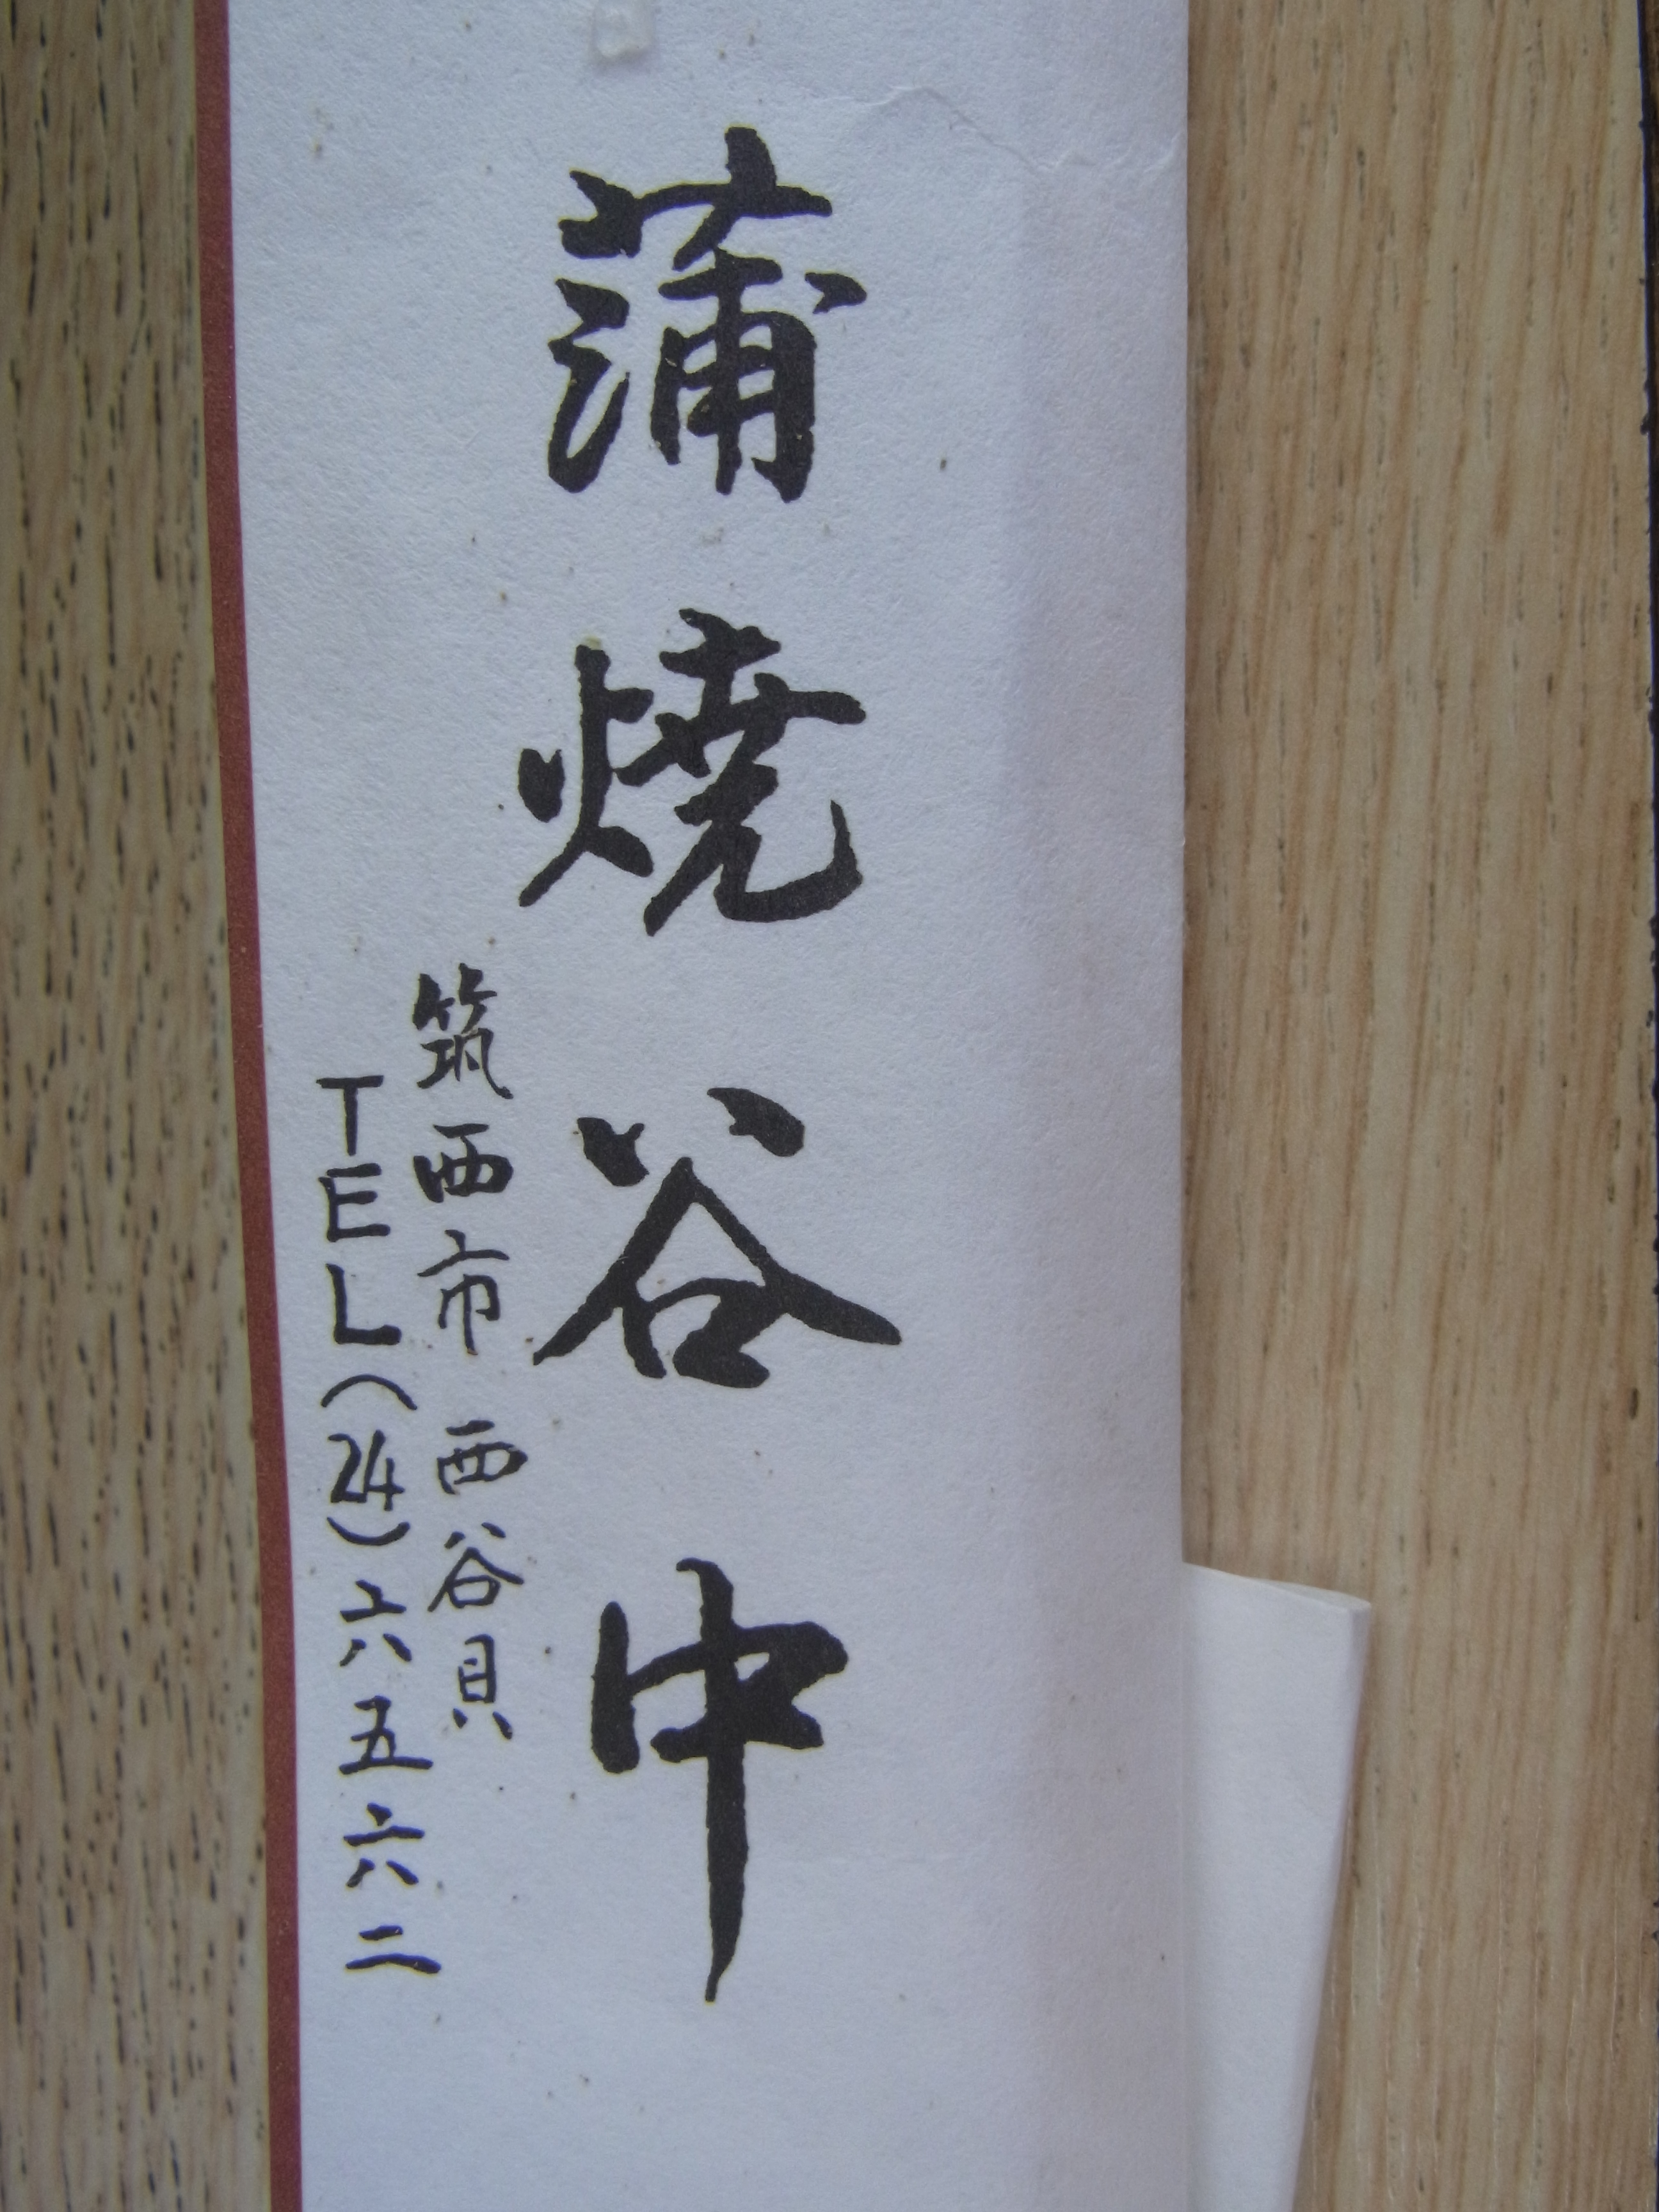 蒲焼谷中
筑西市 西谷貝
TEL(24)六五六二